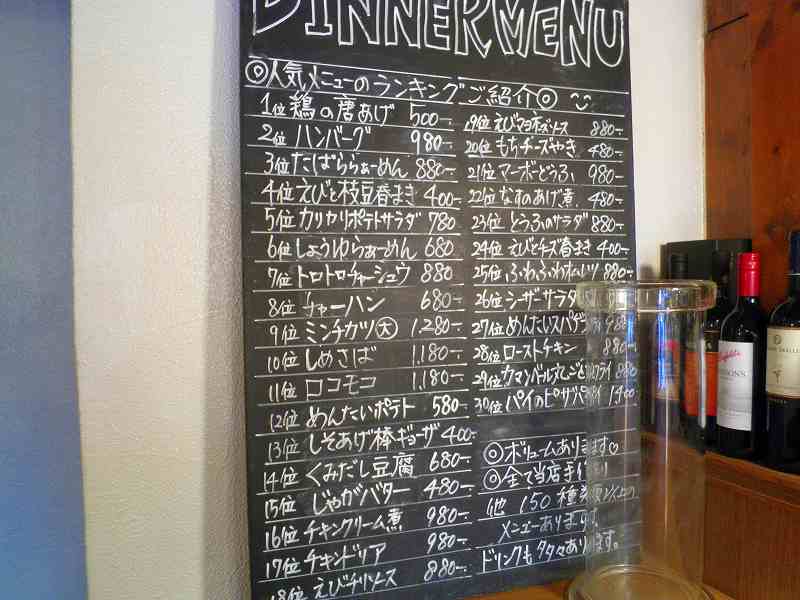 DINNER MENU
◎人気メニューのランキングご紹介◎
1位 鶏の唐あげ 500-
2位 ハンバーグ 980-
3位 たばららぁーめん 880-
4位 えびと枝豆春まき 400-
5位 カリカリポテトサラダ 780
6位 しょうゆらぁーめん 680
7位 トロトロチャーシュウ 880
8位 チャーハン 680-
9位 ミンチカツ大 1.280-
10位 しめさば 1.180-
11位 ロコモコ 1.180-
12位 めんたいポテト 580-
13位 しそあげ棒ギョーザ 400-
14位 くみだし豆腐 680-
15位 じゃがバター 480-
16位 チキンクリーム煮 980-
17位 チキンドリア 980-
18位 えびチリソース 880-
19位 えびマヨネーズソース 880-
20位 もちチーズやき 480-
21位 マーボーどうふ 980-
22位 なすのあげ煮 480-
23位 とうふのサラダ 880-
24位 えびとチーズ春まき 400-
25位 ふわふわオムレツ 880-
26位 シーザーサラダ
27位 めんたいスパゲティ 980
28位 ローストチキン 880
29位 カマンベール丸ごとフライ 880
30位 パイのピザ 1400
◎ボリュームあります♡
◎全て当店手作り
他150種類以上の
メニューあります。
ドリンクも多々あります。